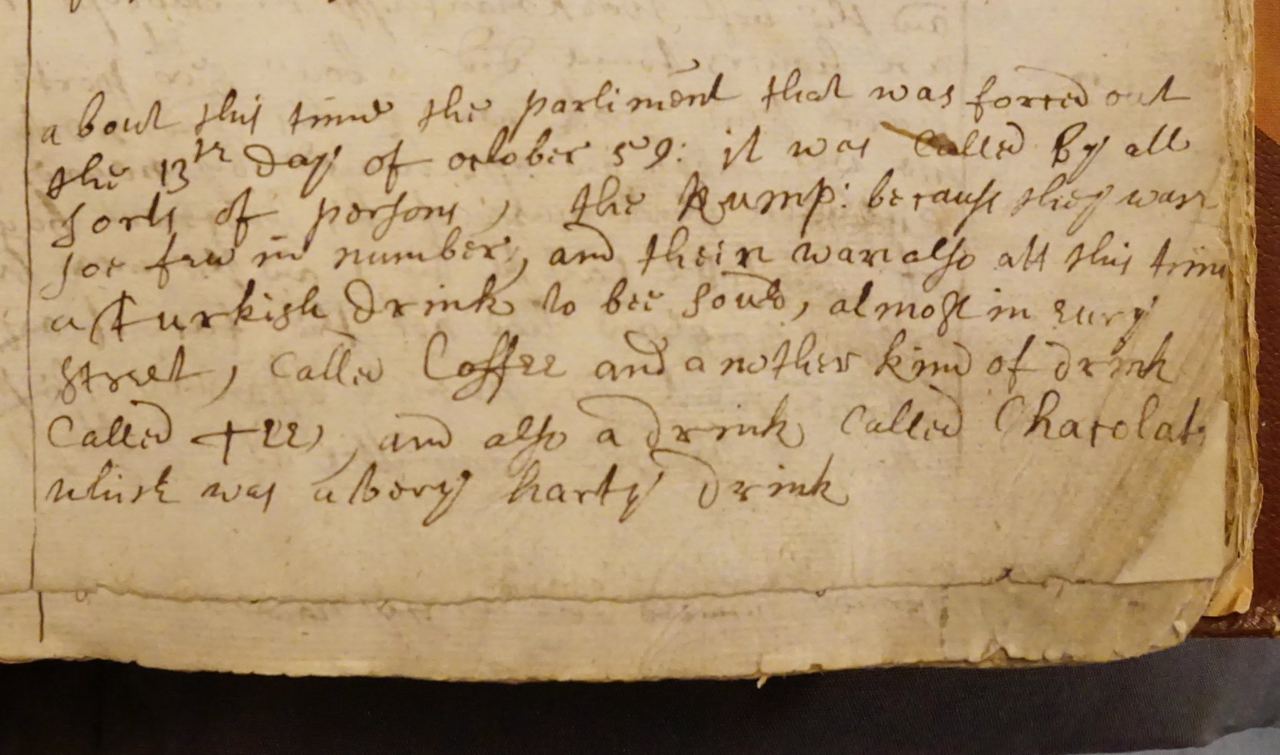 about this time the parliment that was forced out
the 13th day of october 59: it was Called By all
sorts of persons, the Rump: because they warr
soe few in number, and theire war also att this time
a Turkish drink to bee sould, almost in every
street, Called Coffee and another kind of drink
Called Tee, and also a drink Called Chacolate
which was a very harty drink